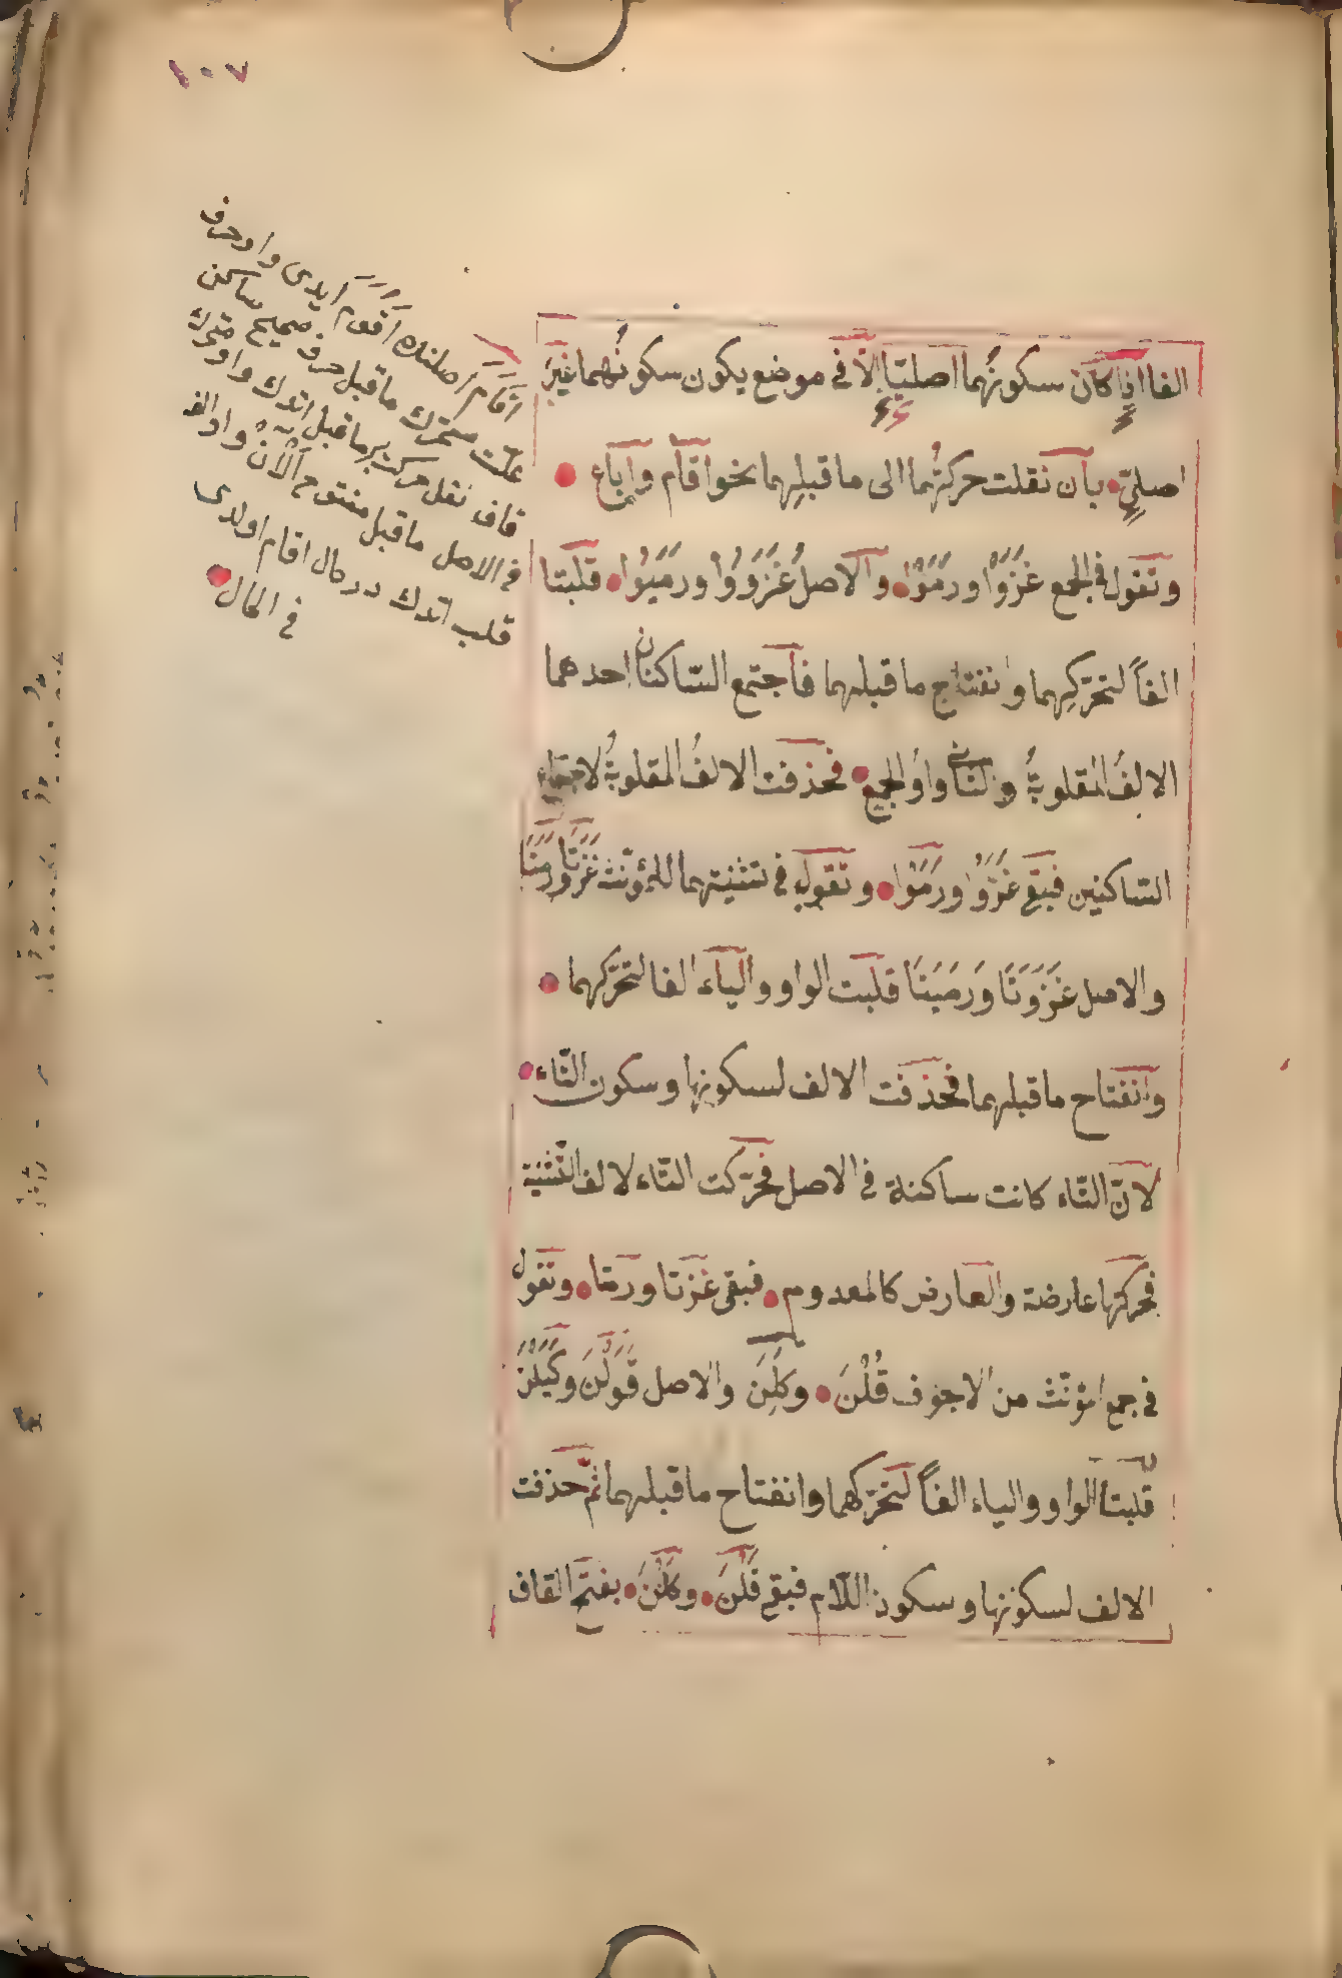 ١٠٧
الفا اذا كان سكونُهما اصليّا الّا فى موضع يكون سكونُهما غيرَ
اصلىّ بان نقلت حركتُهما الى ما قبلِهما نحوا قام واباع
وتقول فى الجمع غَزَوْا ورَمَوْا والاصلُ غَزَوُوا ورَمَيُوا قلبتا
الفاً لتحرّكِهما وانفتاح ما قبلهما فاجتمع السّاكنان احدهما
الالفُ المقلوبةُ والثانى واو الجمع فحذفت الالفُ المقلوبةُ لاجتماع
السّاكنين فبقى غَزَوْا ورَمَوْا وتقول فى تثنيتهما للمؤنّث غَزَتَا ورَمَتَا
والاصل غَزَوَتَا ورَمَيَتَا قلبت الواو والياء الفا لتحرّكهما
وانفتاح ما قبلهما فحذفت الالف لسكونها وسكون التّاء
لانّ التّاء كانت ساكنة فى الاصل فحرّكت التّاء لالف التّثنية
فحركتها عارضة والعارض كالمعدوم فبقى غزتا ورمتا وتقول
فى جمع المؤنّث من الاجوف قُلْنَ وكِلْنَ والاصل قَوَلْنَ وكَيَلْنَ
قلبتا الواو والياء الفاً لتحرّكهما وانفتاح ما قبلهما ثمّ حذفت
الالف لسكونها وسكون اللّام فبقى قَلْنَ وكَلْنَ بفتح القاف
اقام اصلنده اقوم ايدى واو حرف
علّت متحرّك ما قبل حرف صحيح ساكن
نقل حركت ما قبل اتدك واو متحرك
فى الاصل ما قبل مفتوح الان واو الف
قلب اتدك در كال اقام اولدى
فى الحال